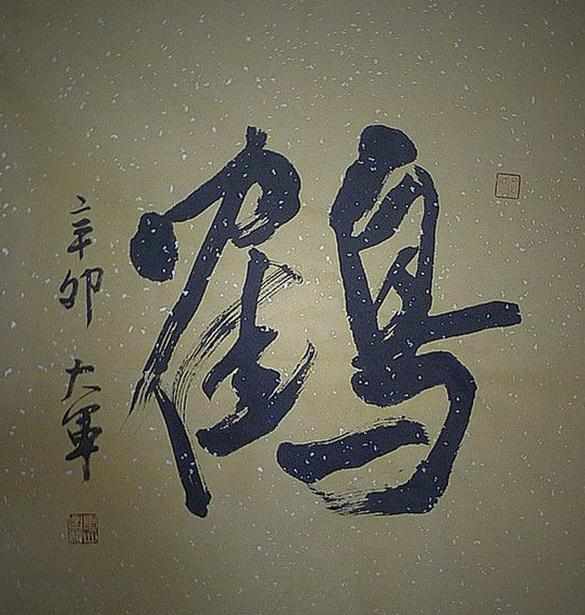 鶴
辛卯 大軍